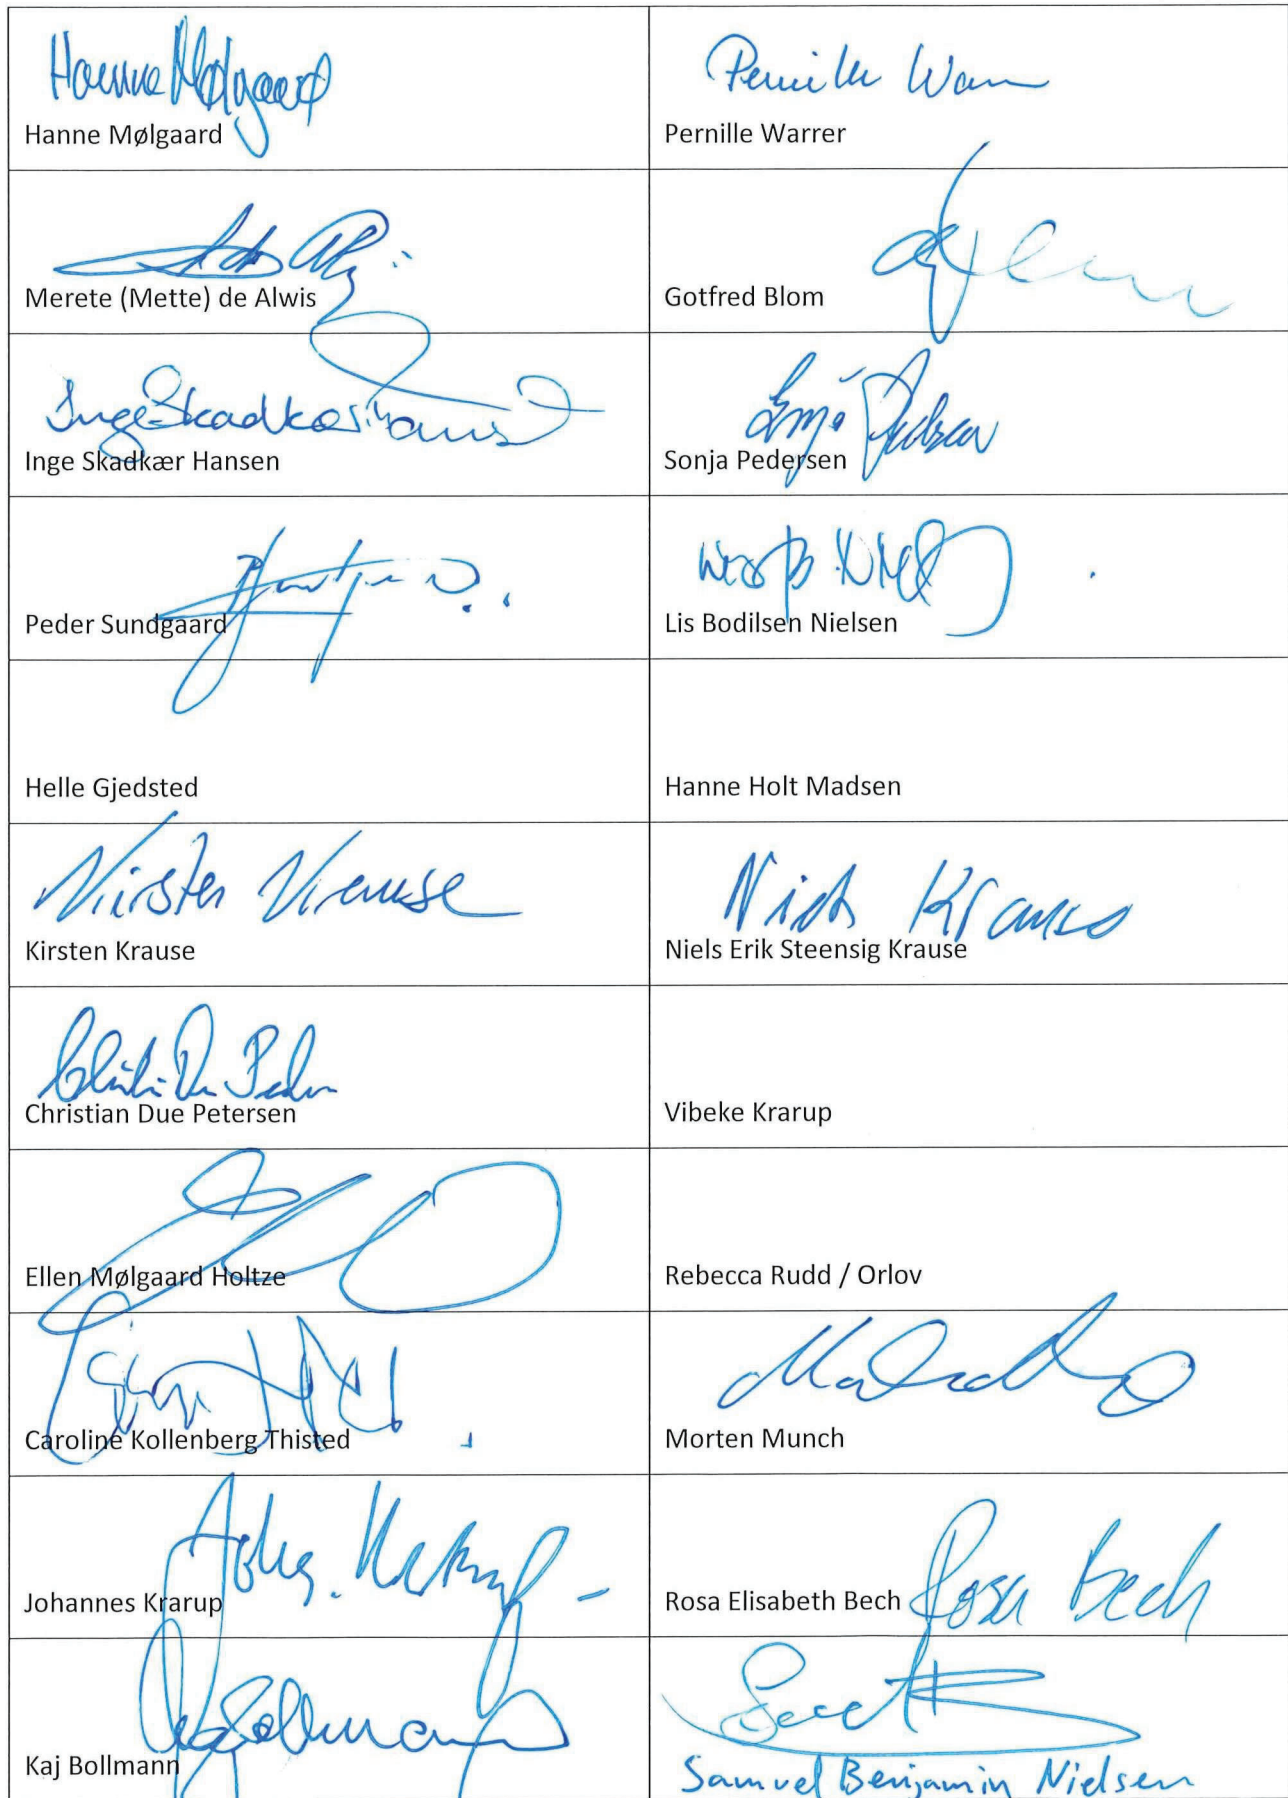 Hanne Mølgaard
Hanne Mølgaard
Pernille Warrer
Merete (Mette) de Alwis
Gotfred Blom
Inge Skadkær Hansen
Inge Skadkær Hansen
Sonja Pedersen
Sonja Pedersen
Peder Sundgaard
Lis Bodilsen Nielsen
Helle Gjedsted
Hanne Holt Madsen
Kirsten Krause
Kirsten Krause
Niels Krause
Niels Erik Steensig Krause
Christian Due Petersen
Vibeke Krarup
Ellen Mølgaard Holtze
Rebecca Rudd / Orlov
Caroline Kollenberg Thisted
Morten Munch
Johannes Krarup
Rosa Elisabeth Bech
Rosa Bech
Kaj Bollmann
Kaj Bollmann
Samuel Benjamin Nielsen